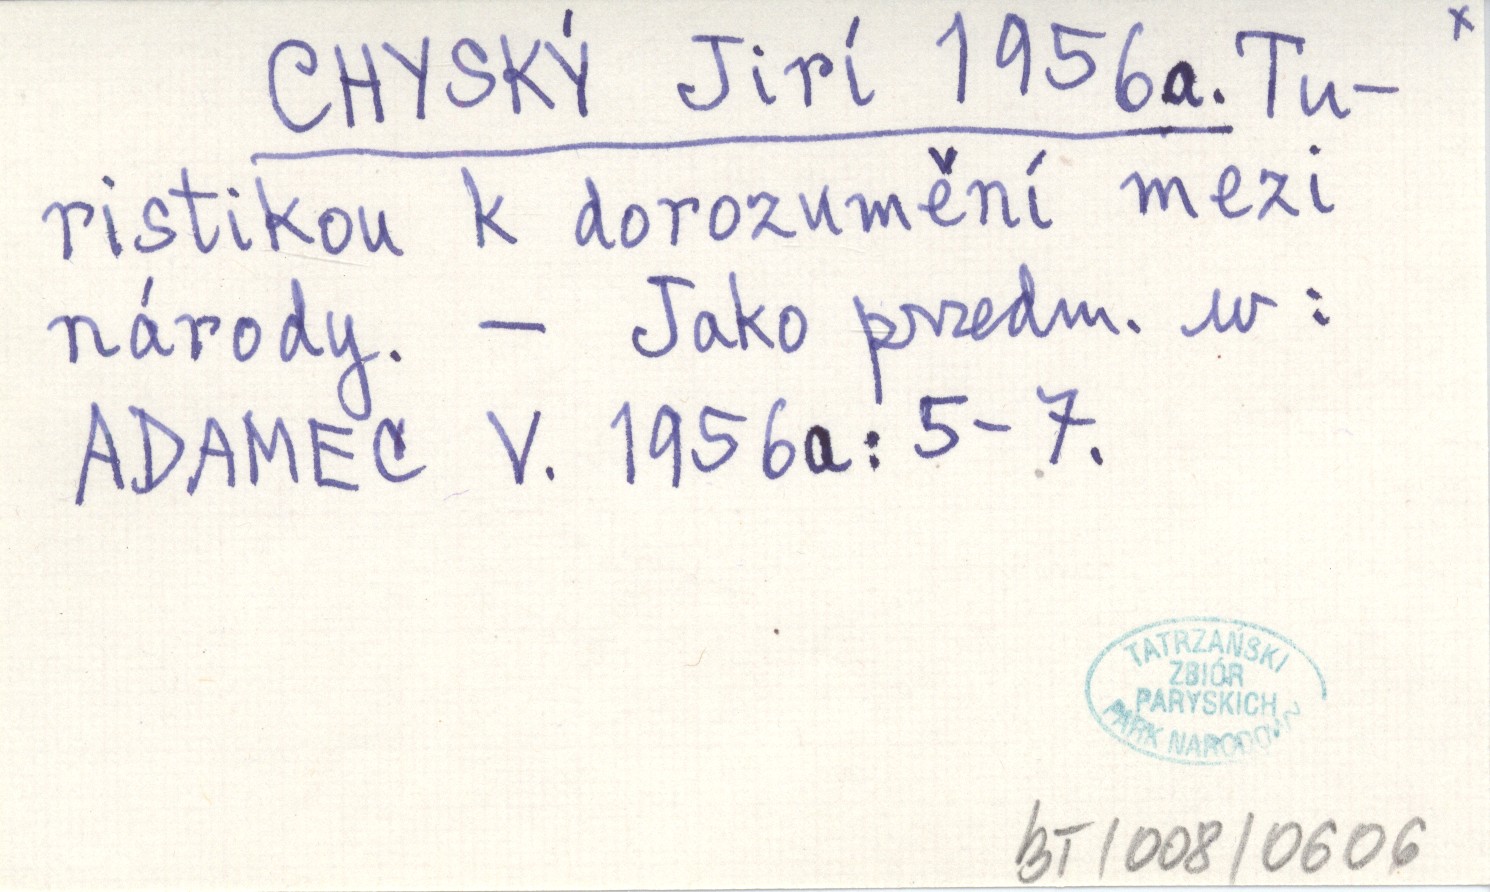 CHYSKÝ Jirí 1956a. Tu- x
ristikou k dorozumění mezi
národy. — Jako przedm. w:
ADAMEC V. 1956a: 5-7.
TATRZAŃSKI
ZBIÓR
PARYSKICH
PARK NARODOWY
BT/008/0606